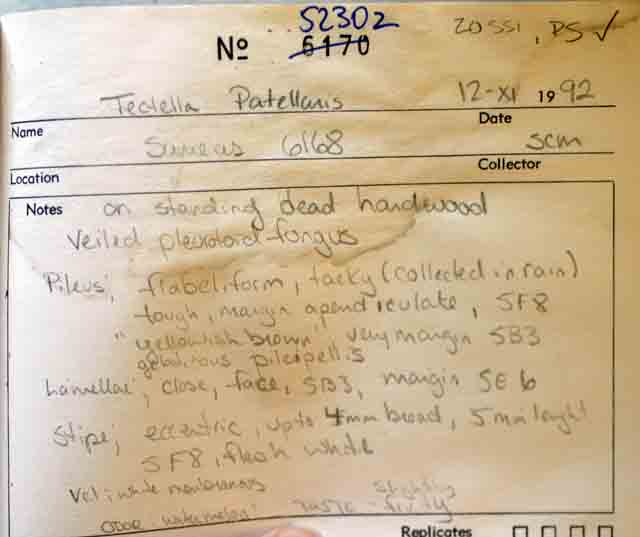 52302
ZOSSI, PS ✓
Nº 6170
Tectella Patellaris 12-XI 1992
Name Date
6168 scm
Location Collector
Notes on standing dead hardwood
Veiled pleurotoid fungus
Pileus; flabeliform, tacky (collected in rain)
tough, margin apendiculate, 5F8
"yellowish brown", very margin 5B3
gelatinous pileipellis
Lamellae; close, face, 5B3, margin 5E6
Stipe; eccentric, upto 4mm broad, 5mm lenght
5F8, flesh white
Veil; white membranous
Odor watermelon taste slightly
fruity
Replicates